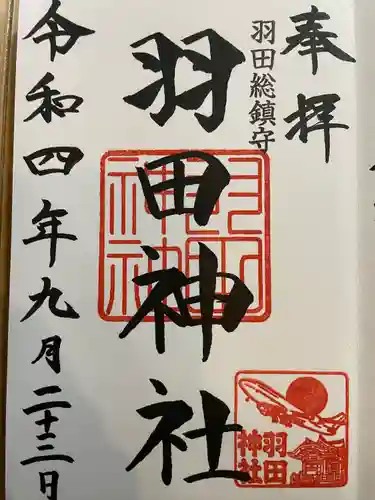 奉拝
羽田総鎮守
羽田神社
羽田神社
羽田
神社
令和四年九月二十三日